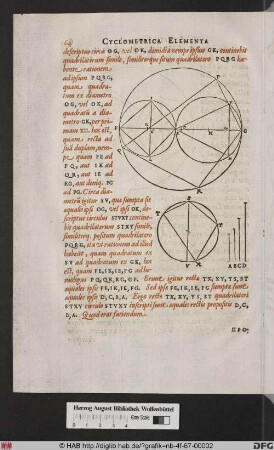 64 CYCLOMETRICA ELEMENTA
descriptus circa OG, vel OK, dimidiâ nempe ipsius GK, continebit
quadrilaterum simile, similiterque situm quadrilatero PQRG ha-
bente rationem
ad ipsum PQRG,
quam quadra-
tum ex diametro
OG, vel OK, ad
quadratū a dia-
metro GK, per pri-
mam XII. hoc est,
quam recta ad
sui duplam, nem-
pe quam FE ad
PQ, aut IK ad
QR, aut IE ad
RG, aut deniq. FG
ad PG. Circa dia-
metrū igitur SV, quæ sumpta sit
æqualis ipsi OG, vel ipsi OK, de-
scriptus circulus STVXY contine-
bit quadrilaterum STXY simile,
similiterq. positum quadrilatero
PQRG, ita vt rationem ad illud
habeat, quam quadratum ex
SV ad quadratum ex GK, hoc
est, quam FE, IK, IE, FG ad ho-
mologas PQ, QR, RG, GP. Erunt igitur rectæ TX, XY, YS, ST
æquales ipsis FE, IK, IE, FG. Sed ipsis FE, IK, IE, FG sumptæ sunt
æquales ipsæ D, C, B, A. Ergo rectæ TX, XY, YS, ST quadrilateri
STXY circulo STVXY inscripti sunt æquales rectis propositis D, C,
B, A. Quod erat faciendum.
K
R
S
T
V
X
A B C D
Herzog August Bibliothek Wolfenbüttel
© HAB http://diglib.hab.de/?grafik=nb-4f-67-00002